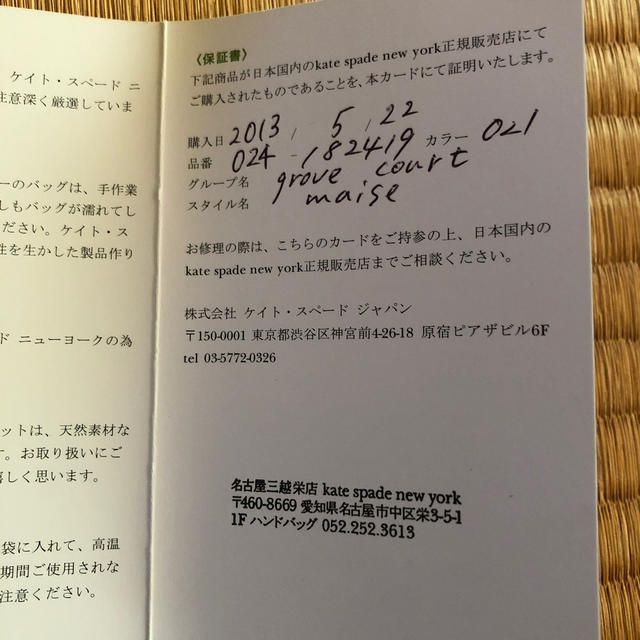 ケイト・スペード ニ
注意深く厳選していま
ーのバッグは、手作業
しもバッグが濡れてし
ださい。ケイト・ス
性を生かした製品作り
ド ニューヨークの為
ットは、天然素材な
す。お取り扱いにご
嬉しく思います。
袋に入れて、高温
期間ご使用されな
注意ください。
〈保証書〉
下記商品が日本国内のkate spade new york正規販売店にて
ご購入されたものであることを、本カードにて証明いたします。
購入日 2013 / 5 / 22
品番 024 - 182419 カラー 021
グループ名 grove court
スタイル名 maise
お修理の際は、こちらのカードをご持参の上、日本国内の
kate spade new york正規販売店までご相談ください。
株式会社 ケイト・スペード ジャパン
〒150-0001 東京都渋谷区神宮前4-26-18 原宿ピアザビル6F
tel 03-5772-0326
名古屋三越栄店 kate spade new york
〒460-8669 愛知県名古屋市中区栄3-5-1
1F ハンドバッグ 052.252.3613